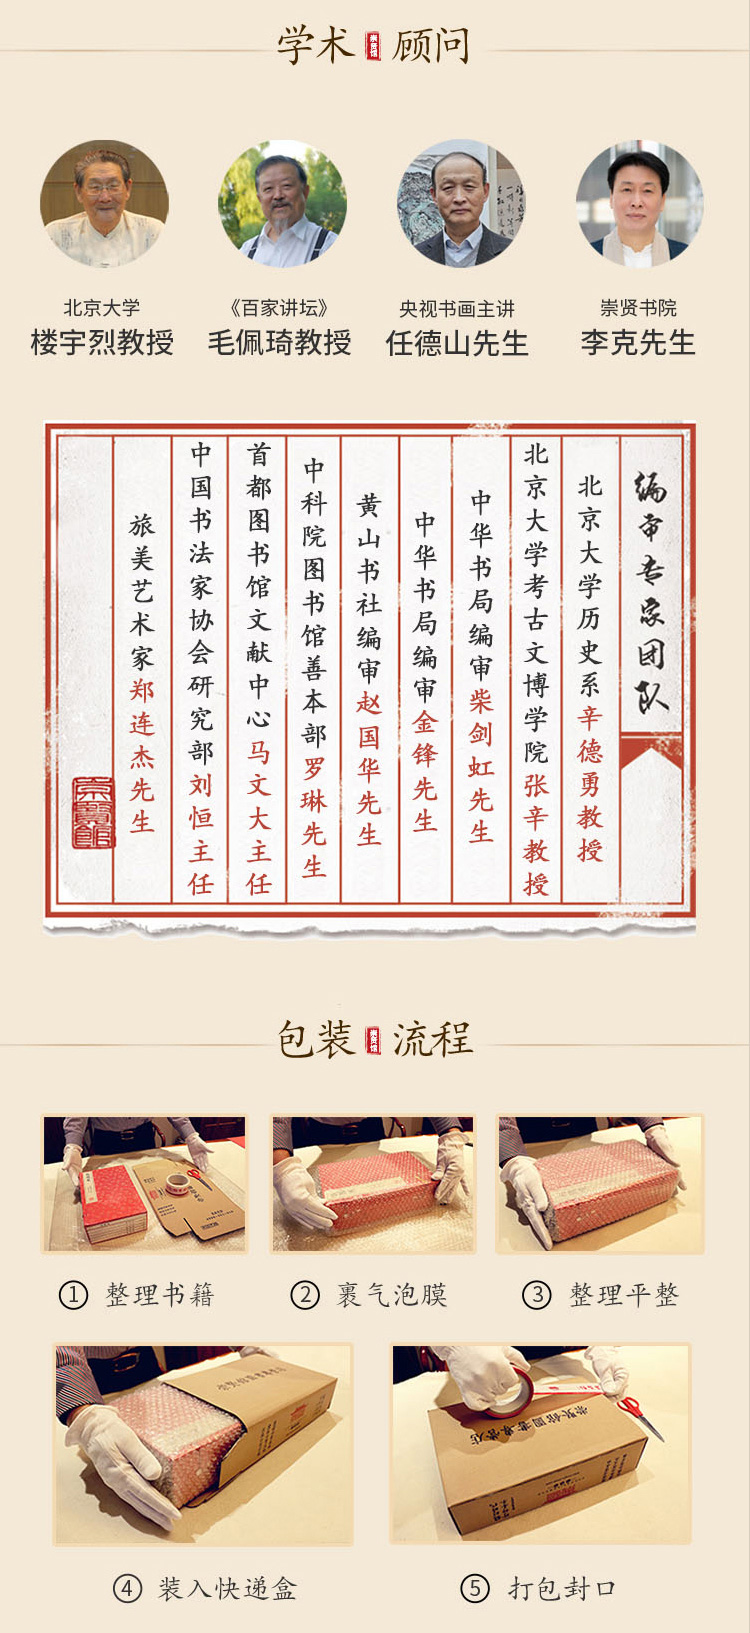 学术 崇贤馆 顾问
北京大学
楼宇烈教授
《百家讲坛》
毛佩琦教授
央视书画主讲
任德山先生
崇贤书院
李克先生
编审专家团队
北京大学历史系辛德勇教授
北京大学考古文博学院张辛教授
中华书局编审柴剑虹先生
中华书局编审金锋先生
黄山书社编审赵国华先生
中科院图书馆善本部罗琳先生
首都图书馆文献中心马文大主任
中国书法家协会研究部刘恒主任
旅美艺术家郑连杰先生
包装 崇贤馆 流程
① 整理书籍
② 裹气泡膜
③ 整理平整
崇贤馆图书专营店
④ 装入快递盒
⑤ 打包封口